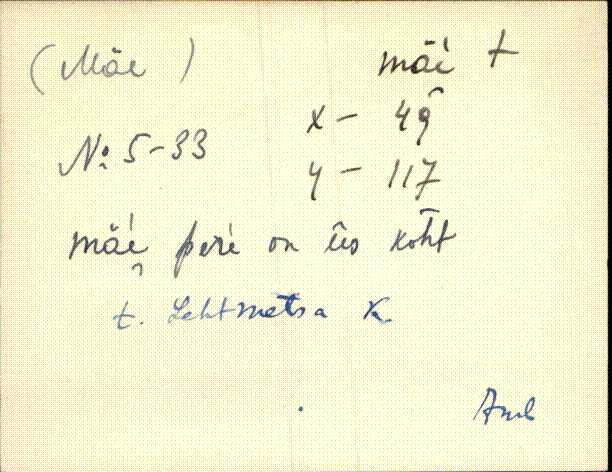 (Mäe) mäi t
x - 49
No 5-33
y - 117
mäe peri on üs koht
t. Lehtmetsa K
Amb